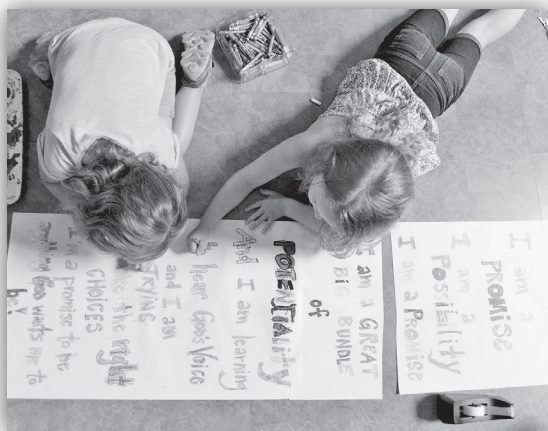 I am a
PROMISE
I am a
Possibility
I am a PROMISE
I am a GREAT
BIG BUNDLE
of
POTENTIALITY
And I am learning
to Hear God's Voice
and I am
TRYING
the right
CHOICES
I'm a promise to be
anything God wants me to
be!